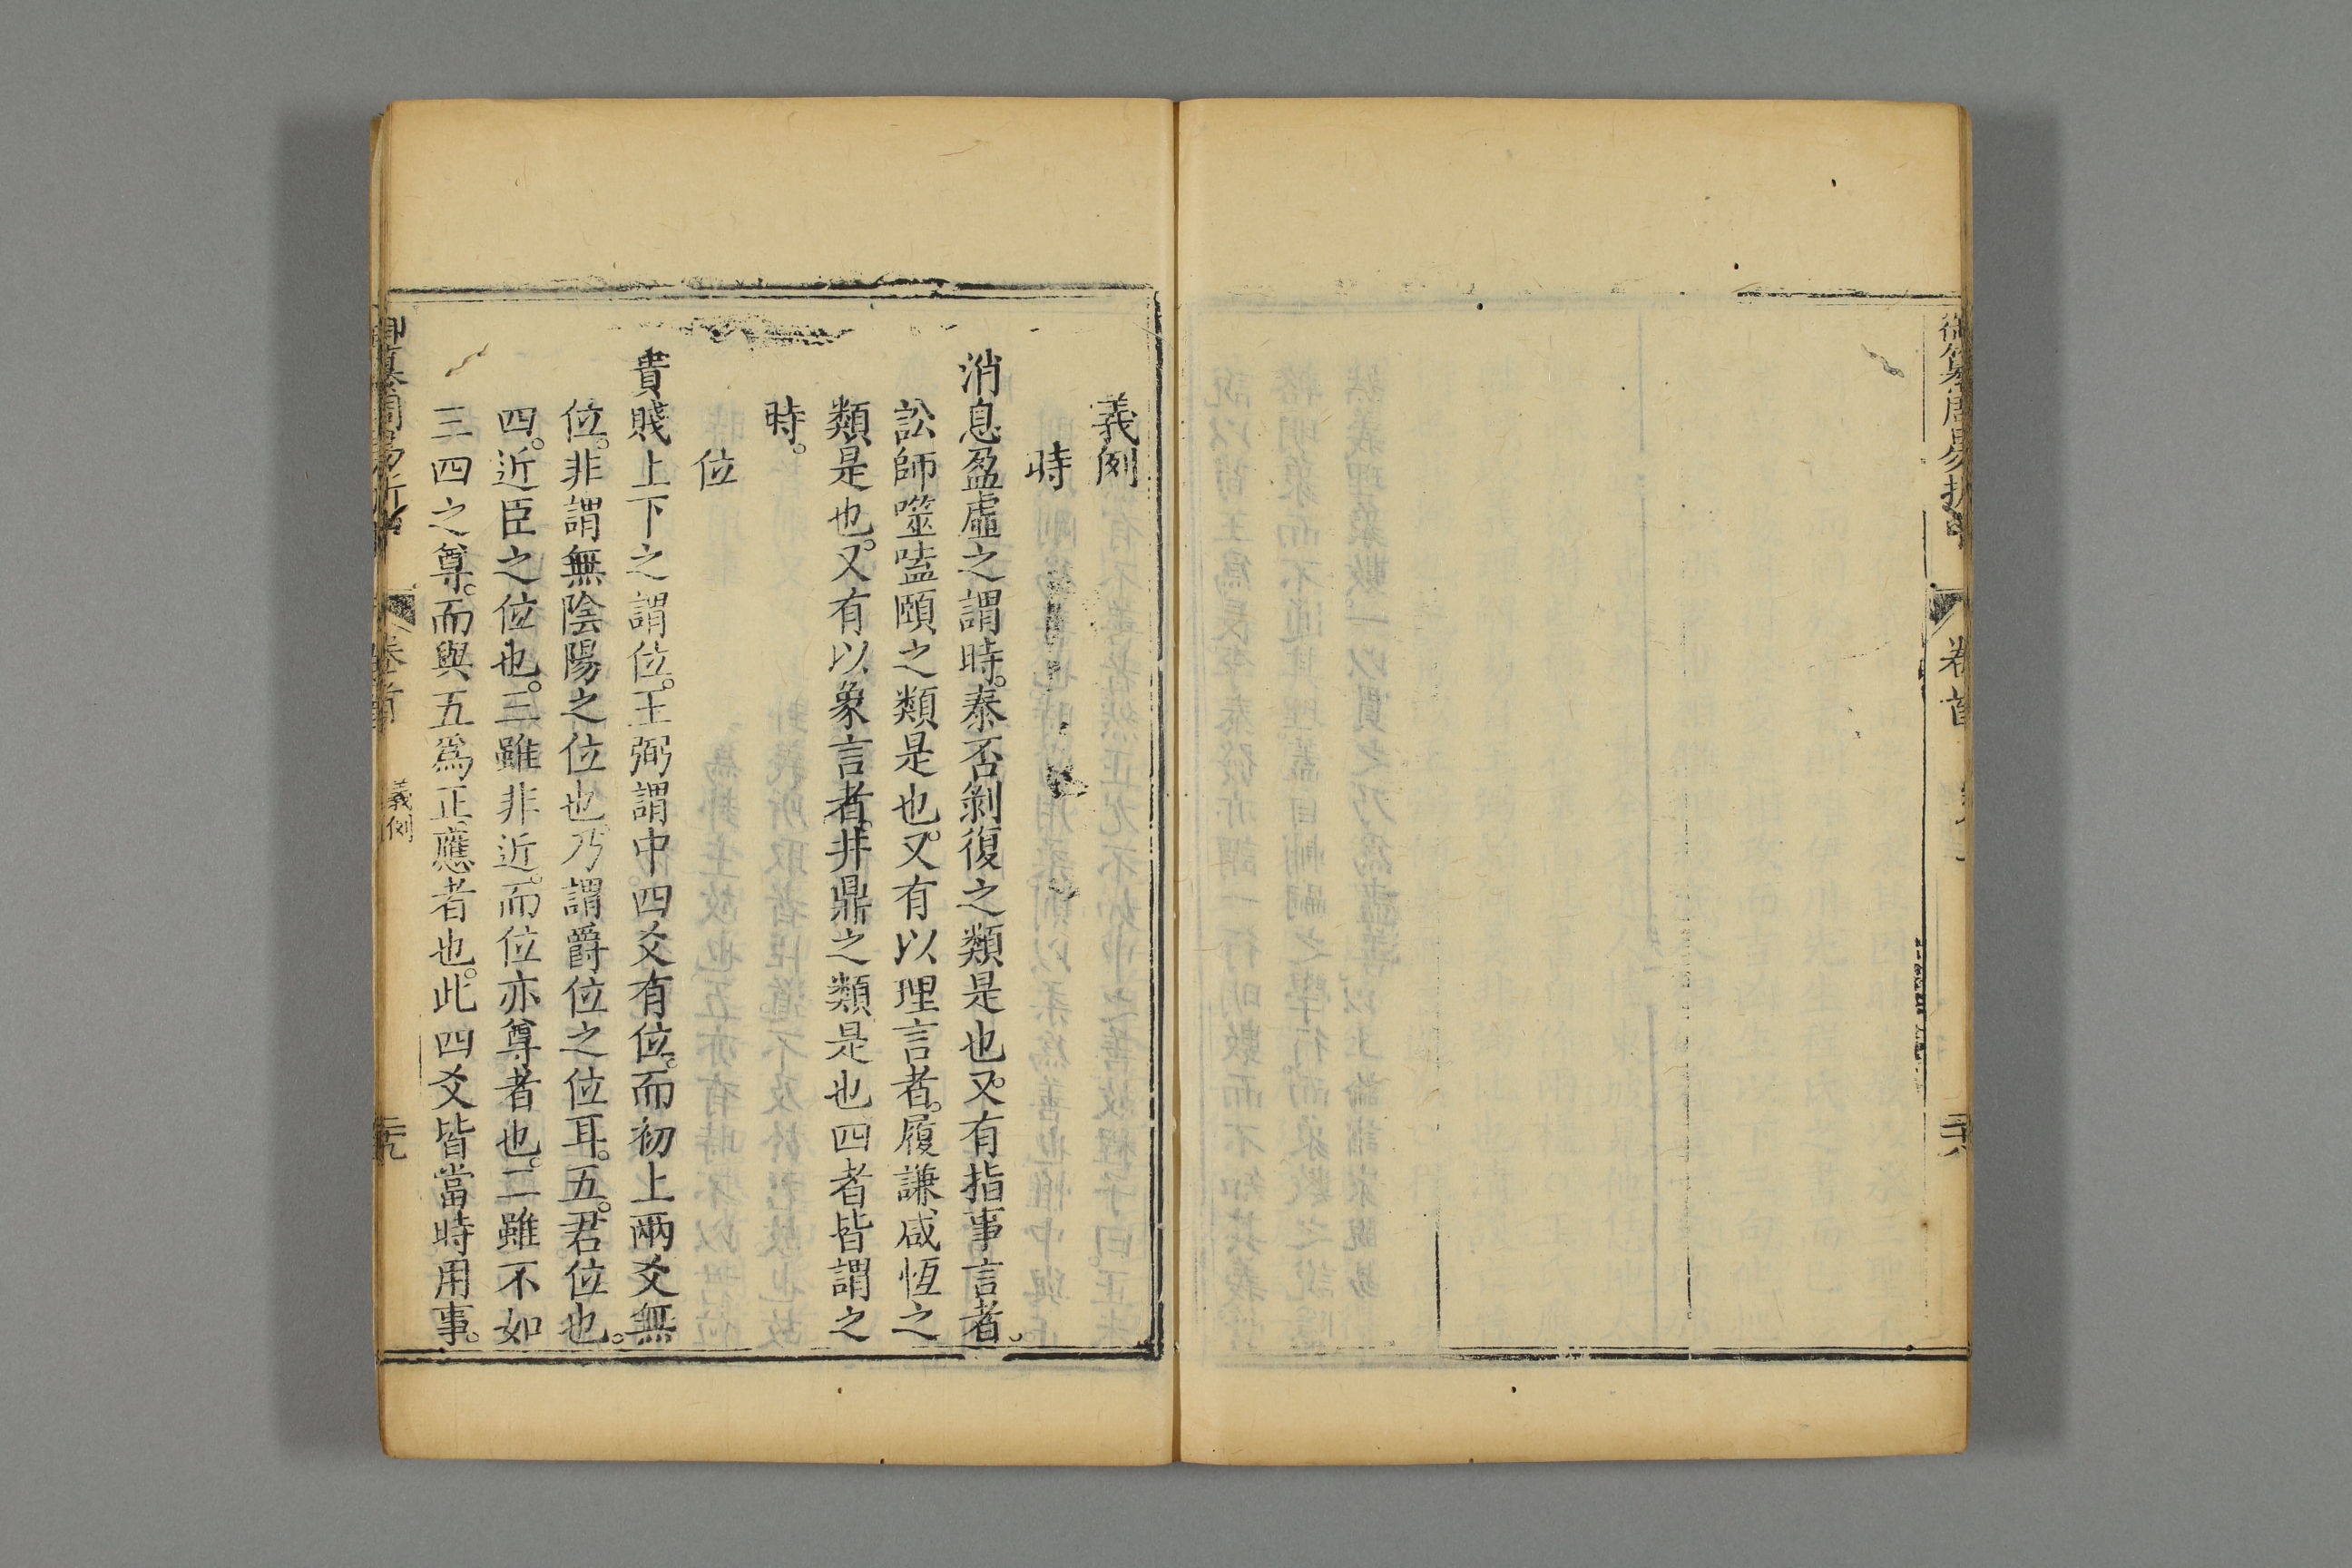 御纂周易折中
卷首
二十八
義例
時
消息盈虛之謂時。泰否剝復之類是也。又有指事言者。
訟師噬嗑頤之類是也。又有以理言者。履謙咸恆之
類是也。又有以象言者。井鼎之類是也四者皆謂之
時。
位
貴賤上下之謂位。王弼謂中四爻有位。而初上兩爻無
位。非謂無陰陽之位也。乃謂爵位之位耳。五。君位也。
四。近臣之位也。三雖非近。而位亦尊者也。二雖不如
三四之尊。而與五爲正應者也。此四爻皆當時用事。
御纂周易折中
卷首
義例
二十九